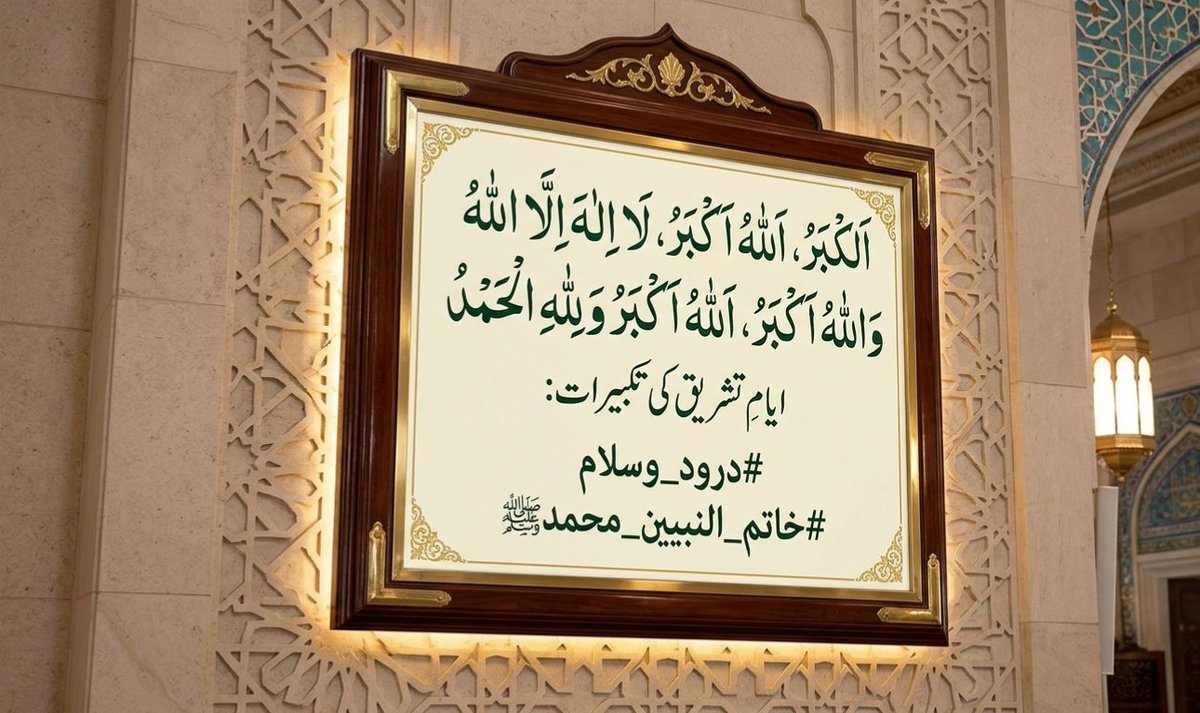 اَلکْبَرُ، اَللّٰهُ اَکْبَرُ، لَا اِلٰهَ اِلَّا اللّٰهُ
وَاللّٰهُ اَکْبَرُ، اَللّٰهُ اَکْبَرُ وَلِلّٰهِ الْحَمْدُ
ایامِ تشریق کی تکبیرات:
#درود_وسلام
#خاتم_النبیین_محمدﷺ